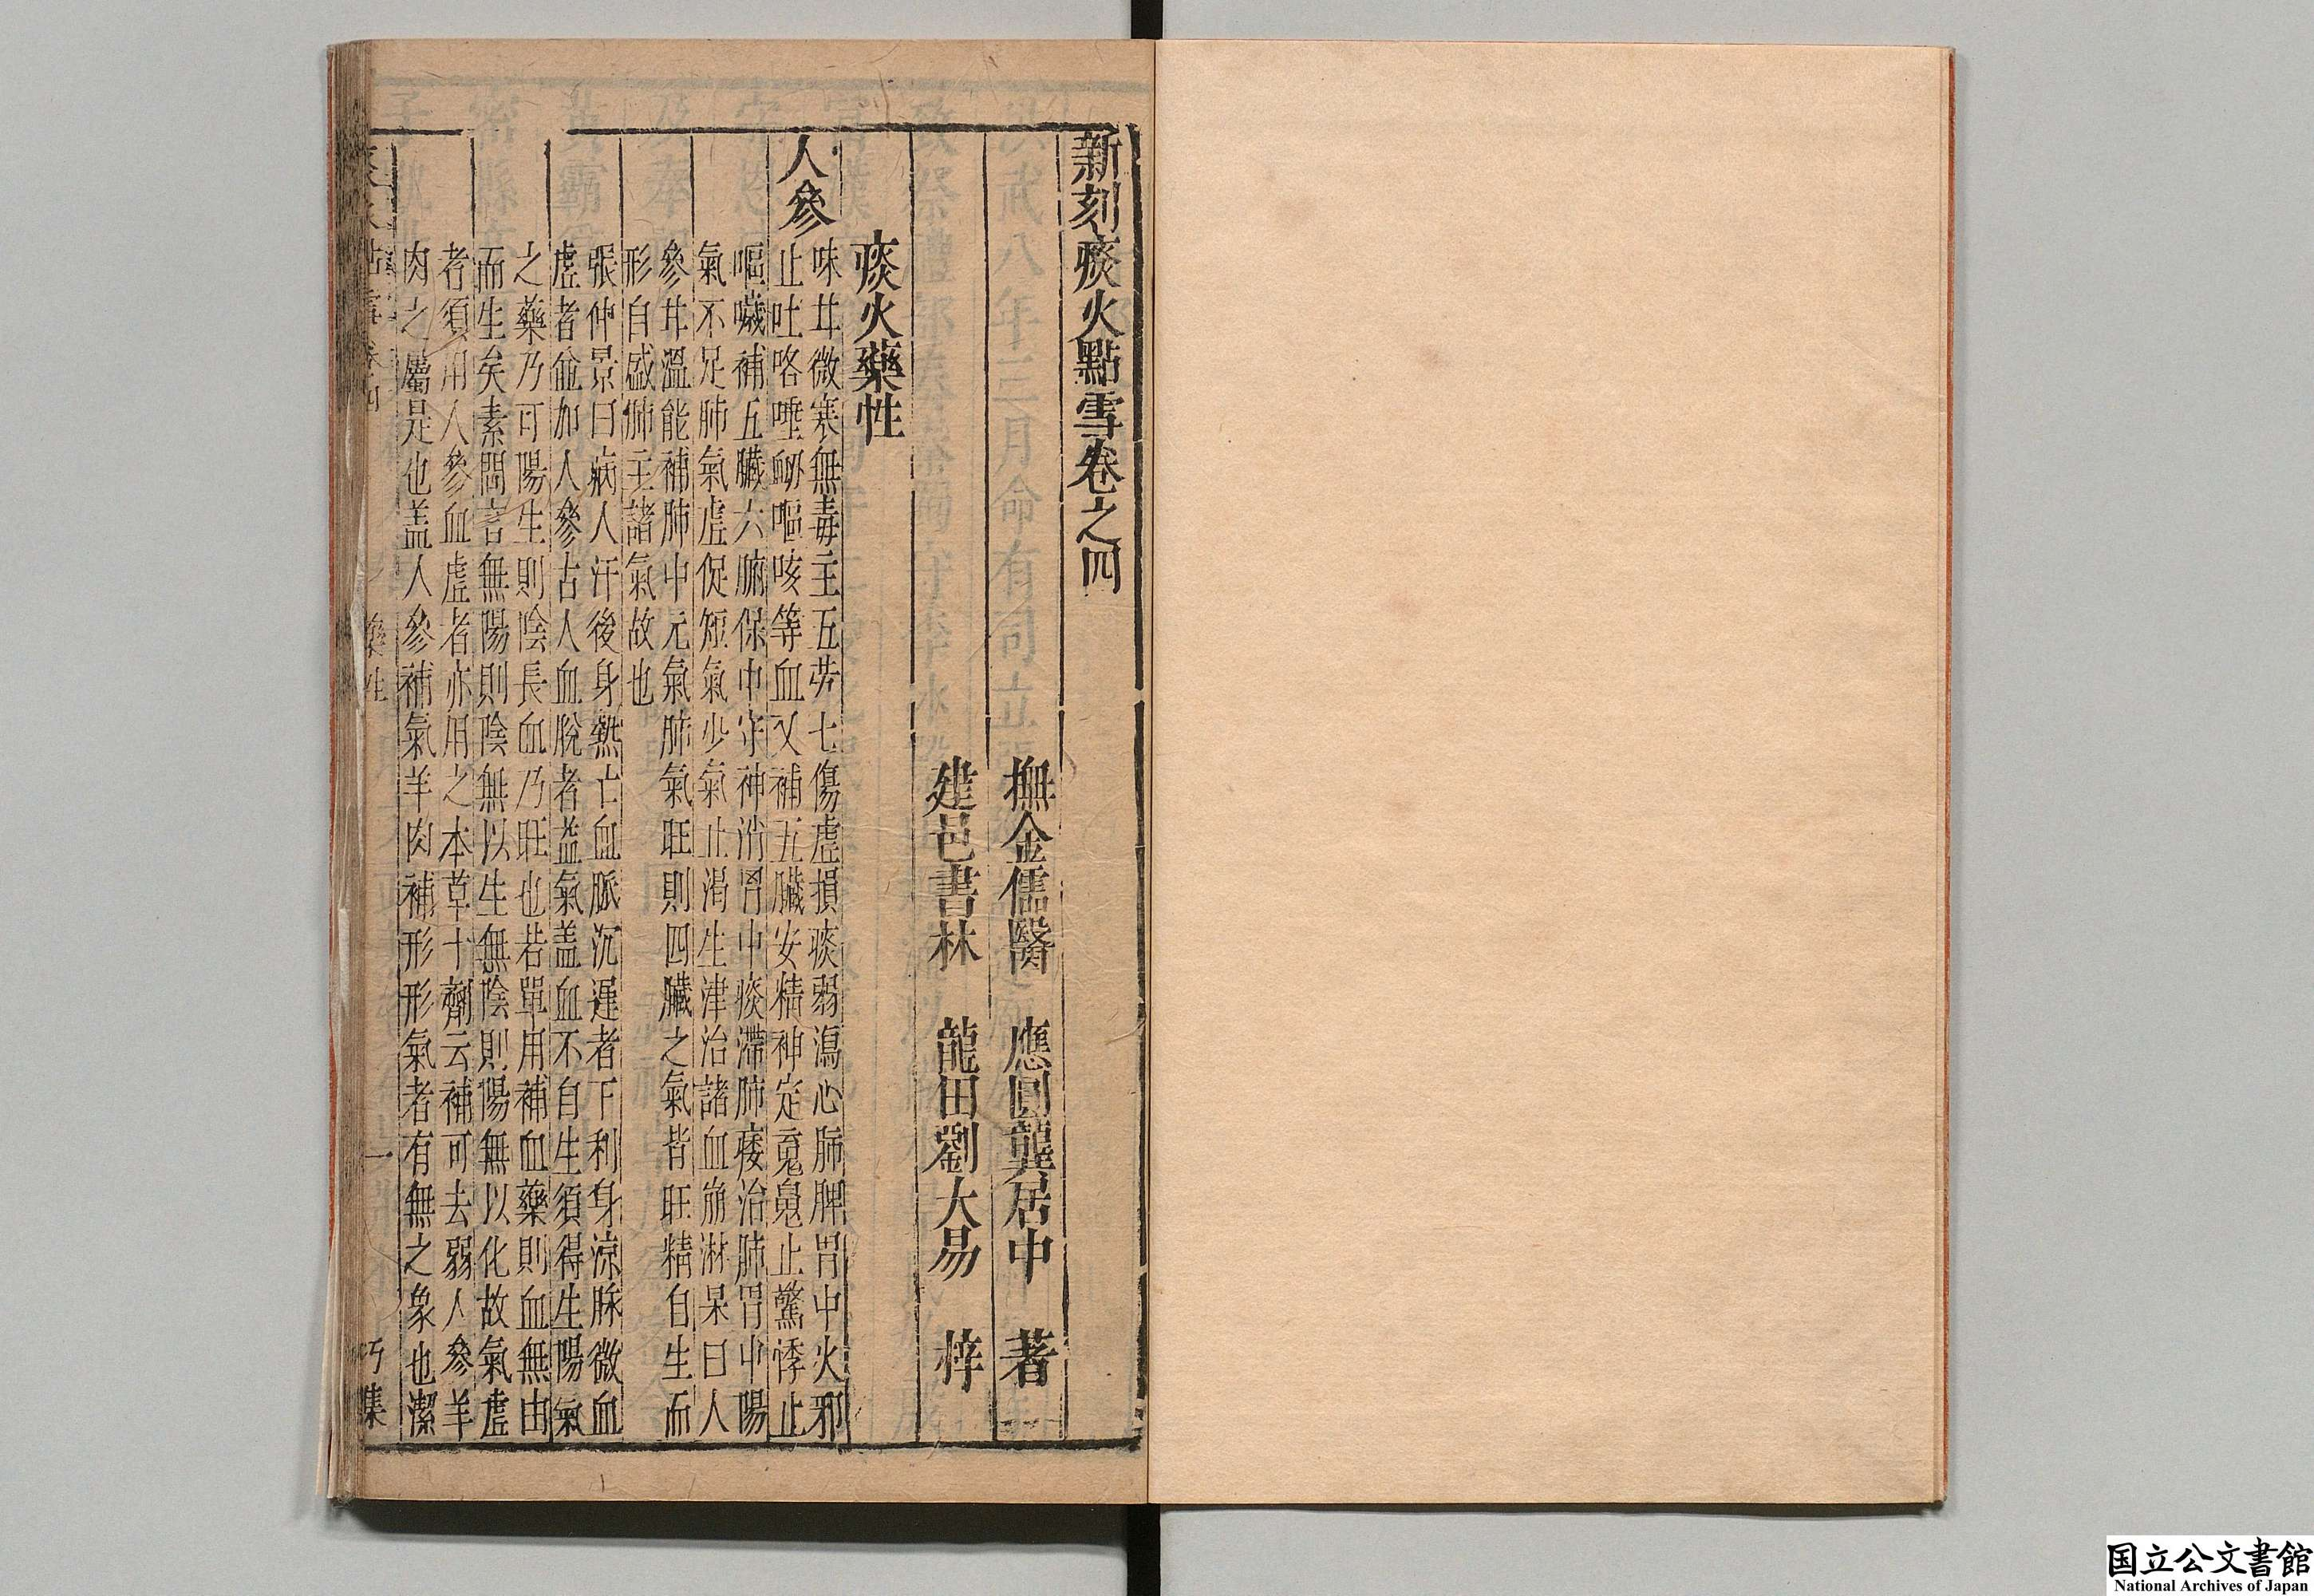 新刻痰火點雪卷之四
撫金儒醫 應圓龔居中 著
建邑書林 龍田劉大易 梓
痰火藥性
人參
味甘微寒無毒主五劳七傷虛損痰弱瀉心肺脾胃中火邪
止吐咯唾衂嘔咳等血又補五臟安精神定䰟䰟止驚悸止
嘔噦補五臟六腑保中守神消胃中痰滯肺痿治肺胃中陽
氣不足肺氣虛促短氣少氣止渴生津治諸血崩淋杲曰人
參甘溫能補肺中元氣肺氣旺則四臟之氣皆旺精自生而
形自盛肺主諸氣故也
張仲景曰病人汗後身熱亡血脈沉遲者下利身涼脉微血
虛者並加人參古人血脫者益氣盖血不自生須得生陽氣
之藥乃可陽生則陰長血乃旺也若單用補血藥則血無由
而生矣素問言無陽則陰無以生無陰則陽無以化故氣虛
者須用人參血虛者亦用之本草十劑云補可去弱人參羊
肉之屬是也盖人參補氣羊肉補形形氣者有無之象也潔
藥性 一
国立公文書館
National Archives of Japan